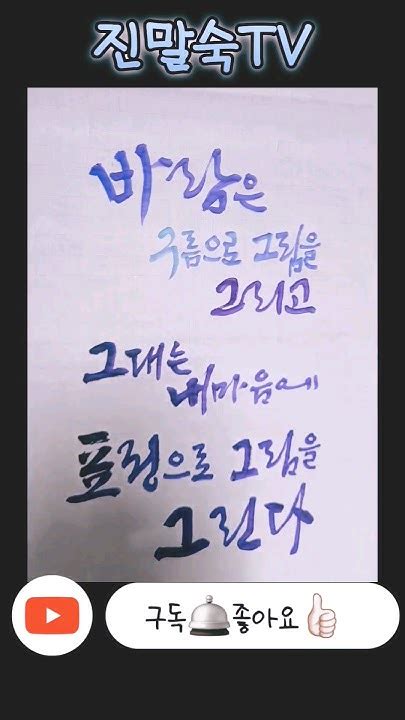 진말숙TV
바람은
구름으로 그림을
그리고
그대는
내마음에
표정으로 그림을
그린다
구독 좋아요